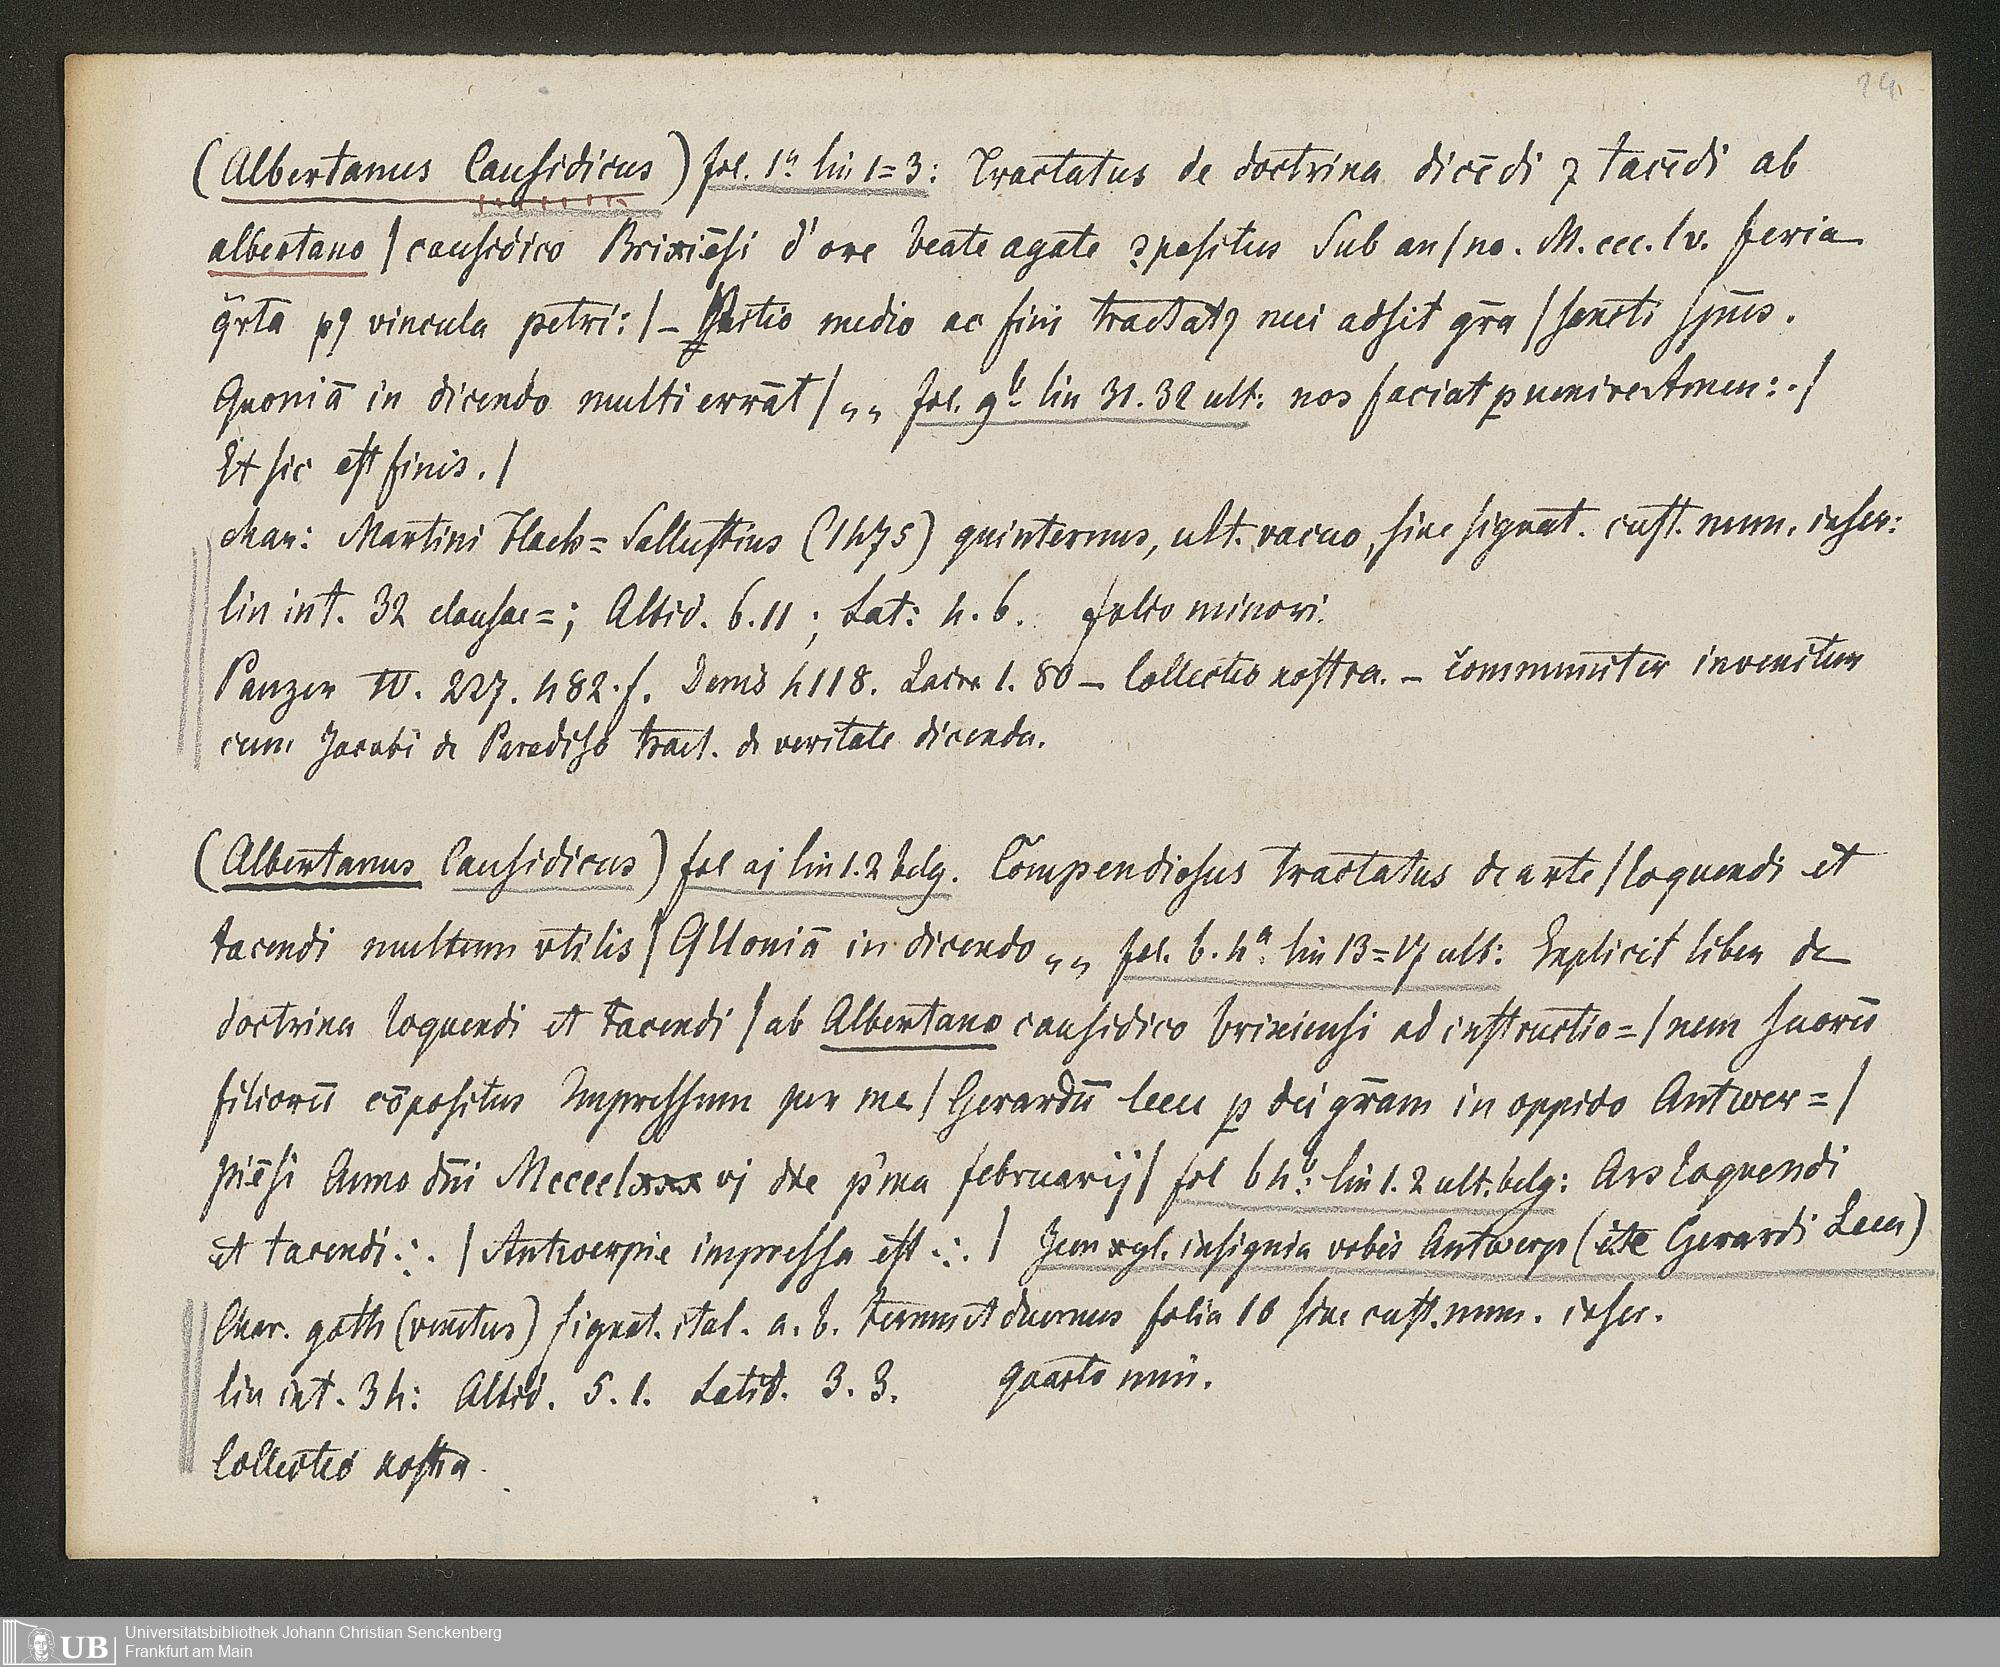 24
(Albertanus Causidicus) fol. 1ª lin 1=3: Tractatus de doctrina dicēdi ⁊ tacēdi ab
albertano / causidico Brixiēsi d' ore beate agate ꝯpositus Sub an/no. M. ccc. lv. feria
qrta pꝯ vincula petri: / — Initio medio ac fini tractatꝯ mei adsit gr̄a / sancti spūs.
Quoniā in dicendo multi errāt / „ „ fol. 9ᵇ lin 31. 32 ult: nos faciat ꝑuenire Amen: · /
Et sic est finis. /
char: Martini Flach= Sallustius (1475) quinternus, ult. vacuo, sine signat. cust. num. inscr:
lin int. 32 clausae=; Altid. 6.11; Lat: 4. 6. folio minori.
Panzer IV. 227. 482. f. Denis 4118. Laire 1. 80 — Collectio nostra. — communiter invenitur
cum Jacobi de Paradiso tract. de veritate dicenda.
(Albertanus Causidicus) fol aj lin 1.2 belg. Compendiosus tractatus de arte / loquendi et
tacendi multum vtilis / QUoniā in dicendo „ „ fol. b. 4ª lin 13=17 ult: Explicit liber de
doctrina loquendi et tacendi / ab Albertano causidico brixiensi ad instructio= / nem suorū
filiorū cōpositus Impressum per me / Gerardū leeu ꝑ dei grām in oppido Antwer= /
piēsi Anno dn̄i Mcccclxxx vj die p'ma februarij / fol b 4ᵇ: lin 1. 2 ult. belg: Ars loquendi
et tacendi ∴ / Antwerpie impressa est ∴ / Jcon xyl. insignia vrbis Antwerp (ite Gerardi Leeu)
Char. goth (venetus) signat. ital. a. b. ternus et duernus folia 10 sine cust. num. inscr.
lin int. 34: Altid. 5. 1. Latid. 3. 3. quarto min.
Collectio nostra.
Universitätsbibliothek Johann Christian Senckenberg
UB Frankfurt am Main